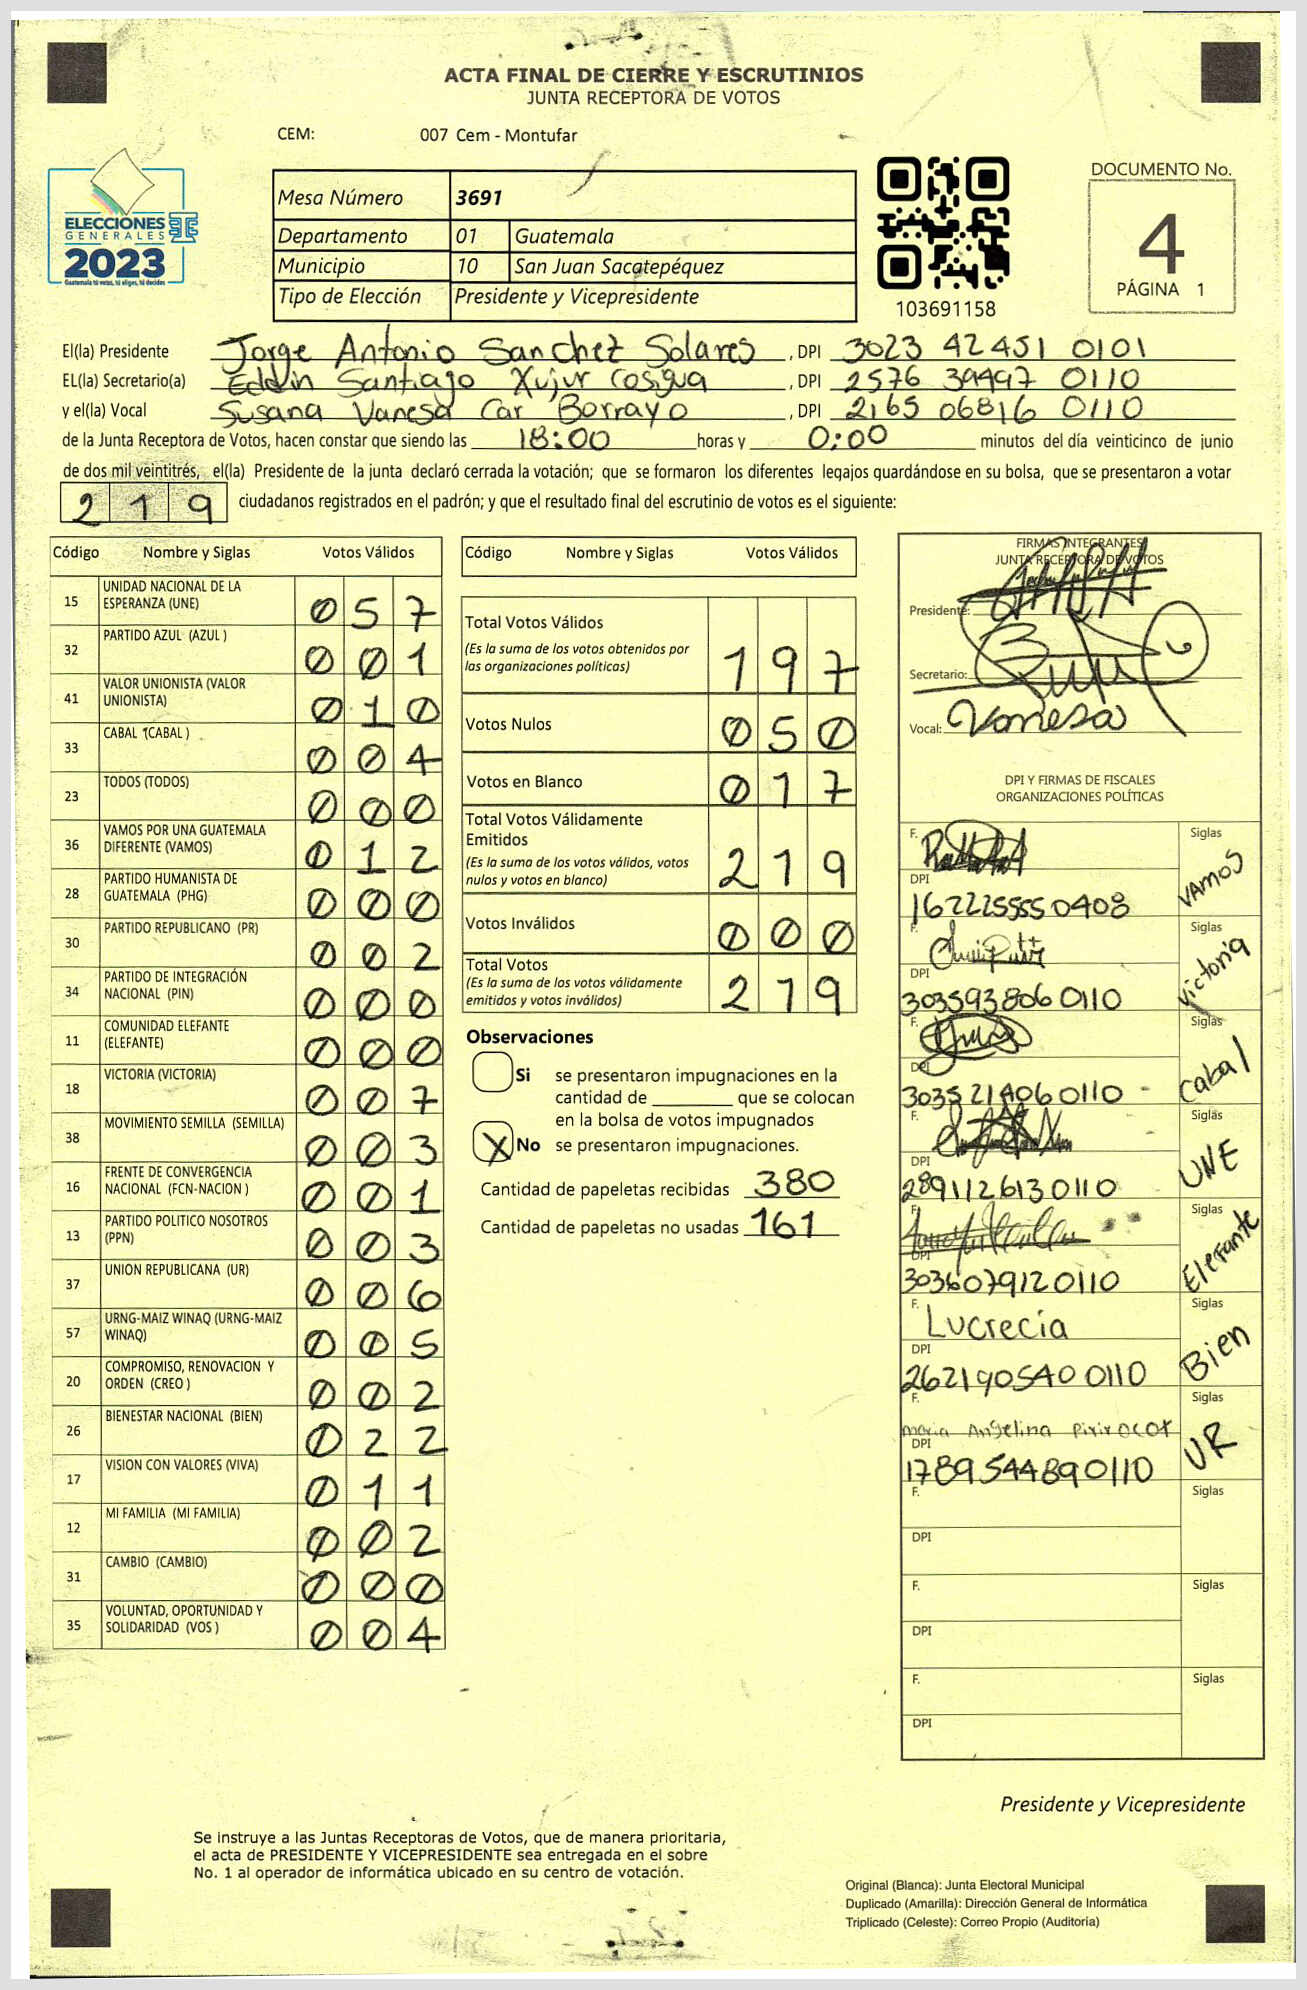 ACTA FINAL DE CIERRE Y ESCRUTINIOS
JUNTA RECEPTORA DE VOTOS
CEM: 007 Cem - Montufar
ELECCIONES
GENERALES
2023
Guatemala tú votas, tú eliges, tú decides
Mesa Número 3691
Departamento 01 Guatemala
Municipio 10 San Juan Sacatepéquez
Tipo de Elección Presidente y Vicepresidente
103691158
DOCUMENTO No.
4
PÁGINA 1
El(la) Presidente Jorge Antonio Sanchez Solares, DPI 3023 42451 0101
EL(la) Secretario(a) Eddin Santiago Xujur Cosigua, DPI 2576 39497 0110
y el(la) Vocal Susana Vanesa Car Borrayo, DPI 2165 06816 0110
de la Junta Receptora de Votos, hacen constar que siendo las 18:00 horas y 0:00 minutos del día veinticinco de junio
de dos mil veintitrés, el(la) Presidente de la junta declaró cerrada la votación; que se formaron los diferentes legajos guardándose en su bolsa, que se presentaron a votar
219 ciudadanos registrados en el padrón; y que el resultado final del escrutinio de votos es el siguiente:
Código Nombre y Siglas Votos Válidos
15 UNIDAD NACIONAL DE LA ESPERANZA (UNE) 057
32 PARTIDO AZUL (AZUL ) 001
41 VALOR UNIONISTA (VALOR UNIONISTA) 010
33 CABAL (CABAL ) 004
23 TODOS (TODOS) 000
36 VAMOS POR UNA GUATEMALA DIFERENTE (VAMOS) 012
28 PARTIDO HUMANISTA DE GUATEMALA (PHG) 000
30 PARTIDO REPUBLICANO (PR) 002
34 PARTIDO DE INTEGRACIÓN NACIONAL (PIN) 000
11 COMUNIDAD ELEFANTE (ELEFANTE) 000
18 VICTORIA (VICTORIA) 007
38 MOVIMIENTO SEMILLA (SEMILLA) 003
16 FRENTE DE CONVERGENCIA NACIONAL (FCN-NACION ) 001
13 PARTIDO POLITICO NOSOTROS (PPN) 003
37 UNION REPUBLICANA (UR) 006
57 URNG-MAIZ WINAQ (URNG-MAIZ WINAQ) 005
20 COMPROMISO, RENOVACION Y ORDEN (CREO ) 002
26 BIENESTAR NACIONAL (BIEN) 022
17 VISION CON VALORES (VIVA) 011
12 MI FAMILIA (MI FAMILIA) 002
31 CAMBIO (CAMBIO) 000
35 VOLUNTAD, OPORTUNIDAD Y SOLIDARIDAD (VOS ) 004
Código Nombre y Siglas Votos Válidos
Total Votos Válidos
(Es la suma de los votos obtenidos por
las organizaciones políticas) 197
Votos Nulos 050
Votos en Blanco 017
Total Votos Válidamente
Emitidos
(Es la suma de los votos válidos, votos
nulos y votos en blanco) 219
Votos Inválidos 000
Total Votos
(Es la suma de los votos válidamente
emitidos y votos inválidos) 219
Observaciones
Si se presentaron impugnaciones en la
cantidad de ________ que se colocan
en la bolsa de votos impugnados
X No se presentaron impugnaciones.
Cantidad de papeletas recibidas 380
Cantidad de papeletas no usadas 161
FIRMAS INTEGRANTES
JUNTA RECEPTORA DE VOTOS
Presidente:
Secretario:
Vocal: Vanesa
DPI Y FIRMAS DE FISCALES
ORGANIZACIONES POLÍTICAS
F. Siglas VAMOS
DPI
1622255550408
F. Siglas Victoria
DPI
3035938060110
F. Siglas Cabal
DPI
3035214060110
F. Siglas UNE
DPI
2891126130110
F. Siglas Elefante
DPI
3036079120110
F. Lucrecia Siglas Bien
DPI
2621905400110
F. maria Angelina Pirir Siglas UR
DPI
1789544890110
F. Siglas
DPI
F. Siglas
DPI
F. Siglas
DPI
Presidente y Vicepresidente
Se instruye a las Juntas Receptoras de Votos, que de manera prioritaria,
el acta de PRESIDENTE Y VICEPRESIDENTE sea entregada en el sobre
No. 1 al operador de informática ubicado en su centro de votación.
Original (Blanca): Junta Electoral Municipal
Duplicado (Amarilla): Dirección General de Informática
Triplicado (Celeste): Correo Propio (Auditoría)